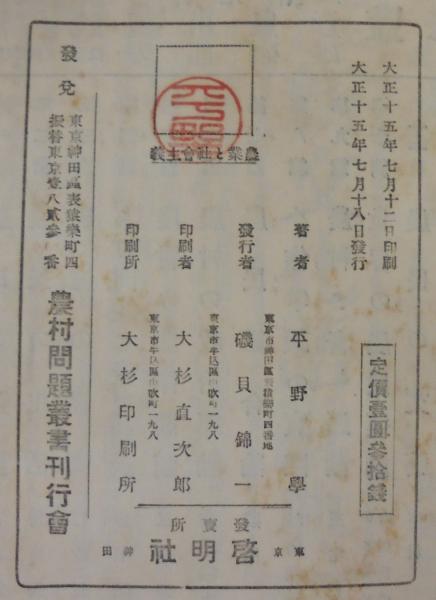 大正十五年七月十二日印刷
大正十五年七月十八日發行
定價壹圓參拾錢
農業と社會主義
著者 平野學
東京市神田區表猿樂町四番地
發行者 磯貝錦一
東京市牛込區山吹町一九八
印刷者 大杉直次郎
東京市牛込區山吹町一九八
印刷所 大杉印刷所
發賣所
東京 神田 啓明社
發兌
東京神田區表猿樂町四
振替東京壹八貳參 番
農村問題叢書刊行會